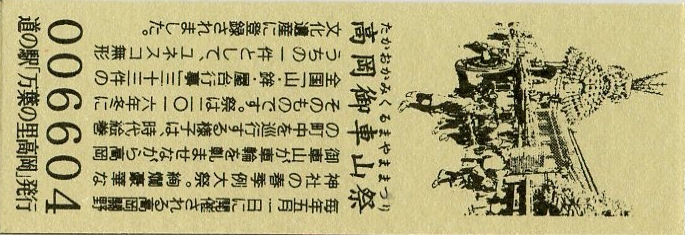 たかおかみくるまやままつり
高岡御車山祭
毎年五月一日に開催される高岡關野
神社の春季例大祭。絢爛豪華な
御車山が車輪を軋ませながら高岡
の町中を巡行する様子は、時代絵巻
そのものです。祭は二〇一六年冬に
全国「山・鉾・屋台行事」三十三件の
うちの一件として、ユネスコ無形
文化遺産に登録されました。
006604
道の駅「万葉の里高岡」発行